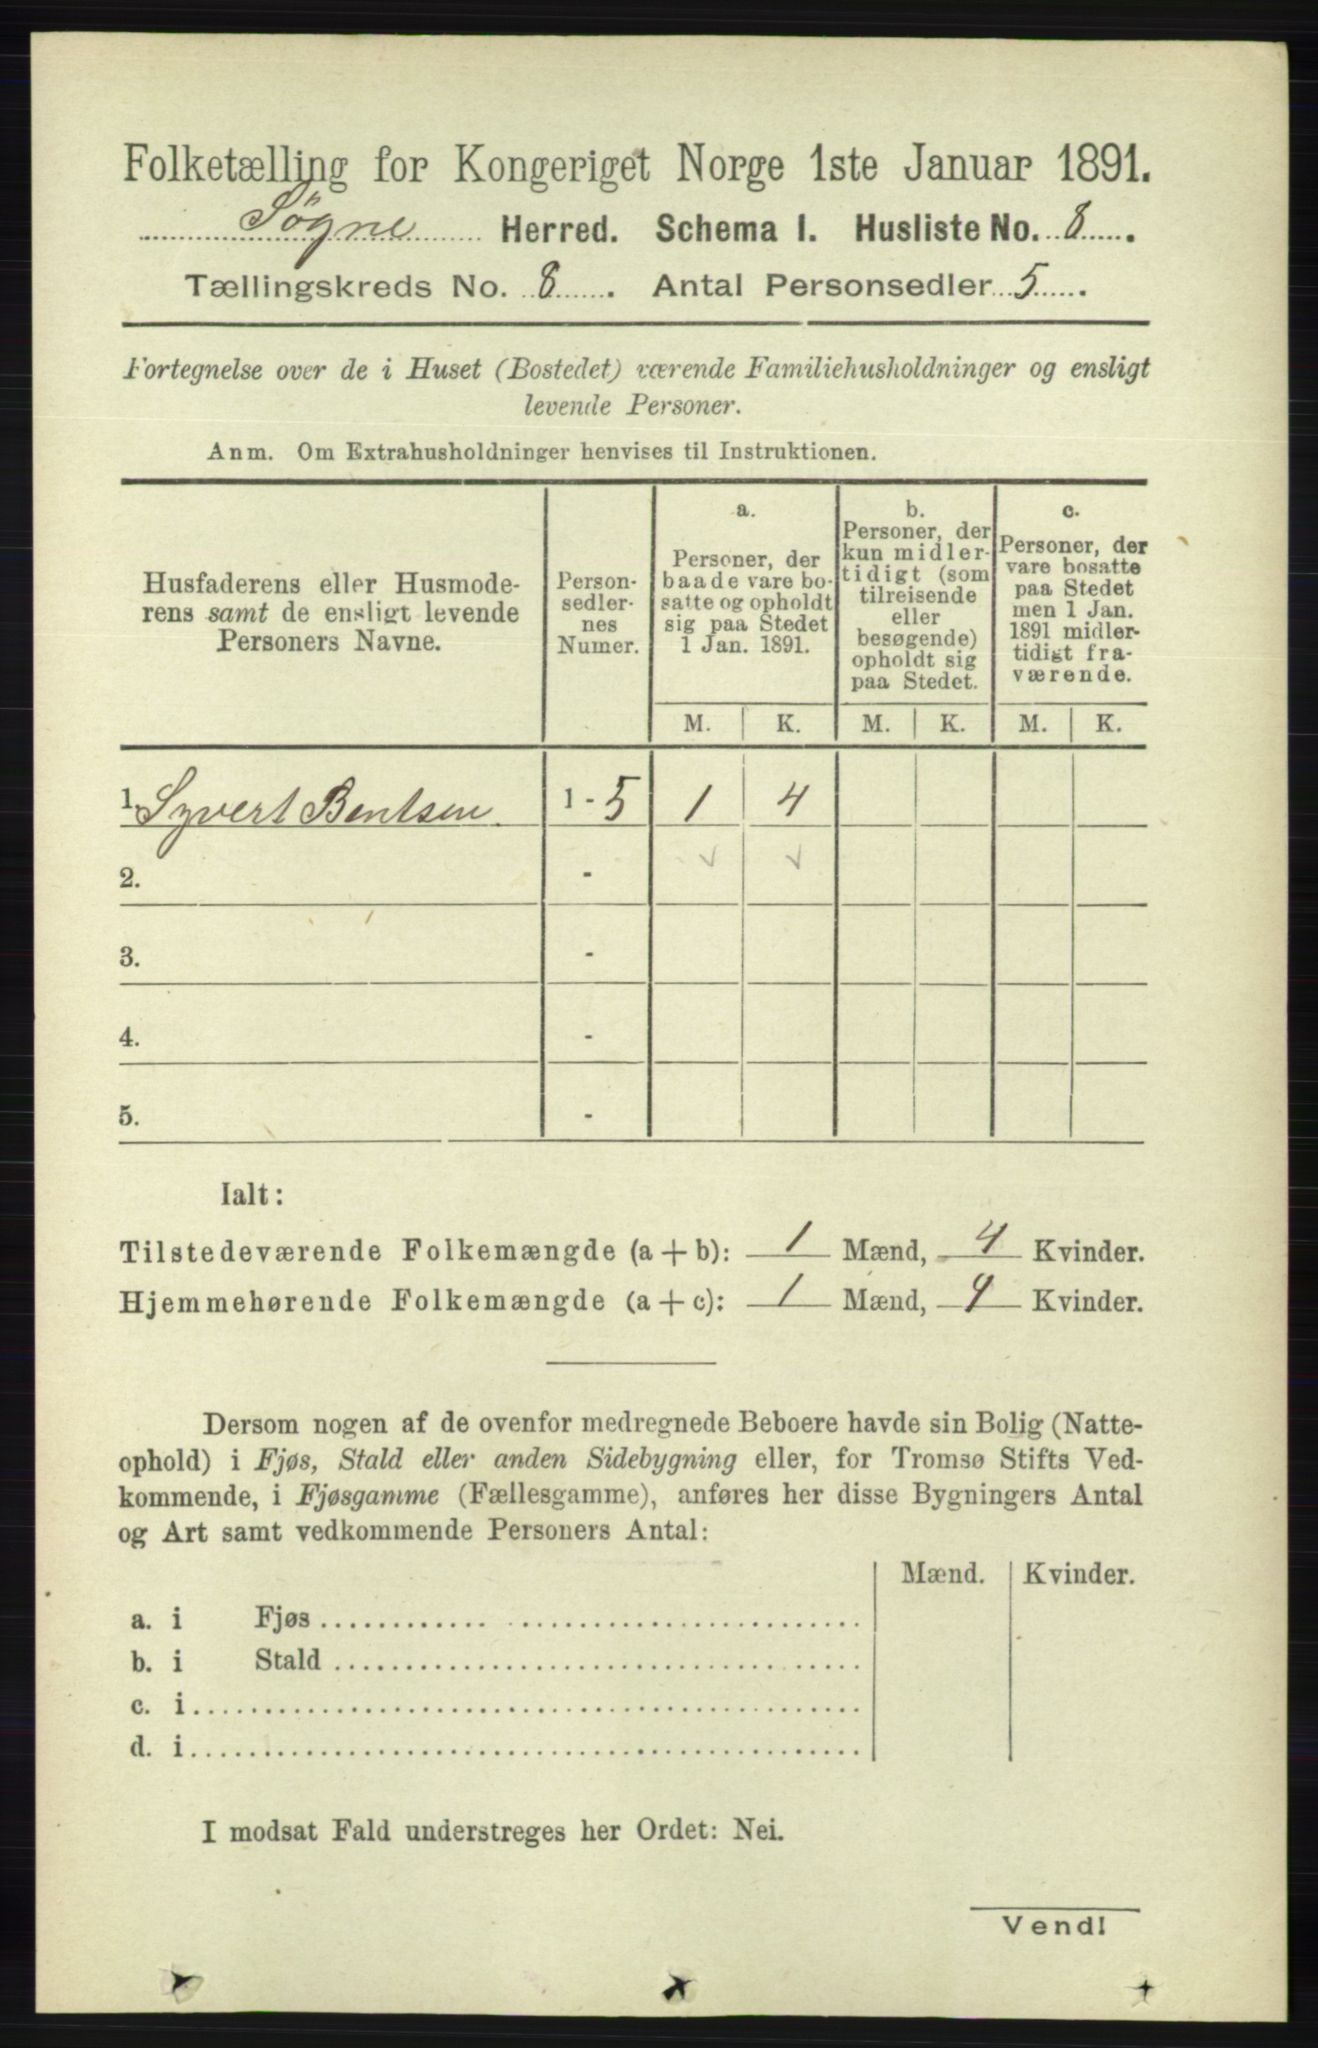 Folketælling for Kongeriget Norge 1ste Januar 1891.
Søgne Herred. Schema I. Husliste No. 8.
Tællingskreds No. 8. Antal Personsedler 5.
Fortegnelse over de i Huset (Bostedet) værende Familiehusholdninger og ensligt
levende Personer.
Anm. Om Extrahusholdninger henvises til Instruktionen.
Husfaderens eller Husmode-
rens samt de ensligt levende
Personers Navne.
Person-
sedler-
nes
Numer.
a.
Personer, der
baade vare bo-
satte og opholdt
sig paa Stedet
1 Jan. 1891.
b.
Personer, der
kun midler-
tidigt (som
tilreisende
eller
besøgende)
opholdt sig
paa Stedet.
c.
Personer, der
vare bosatte
paa Stedet
men 1 Jan.
1891 midler-
tidigt fra-
værende.
M. K. M. K. M. K.
1. Syvert Bentsen. 1 - 5 1 4
2. -
3. -
4. -
5. -
Ialt:
Tilstedeværende Folkemængde (a + b): 1 Mænd, 4 Kvinder.
Hjemmehørende Folkemængde (a + c): 1 Mænd, 4 Kvinder.
Dersom nogen af de ovenfor medregnede Beboere havde sin Bolig (Natte-
ophold) i Fjøs, Stald eller anden Sidebygning eller, for Tromsø Stifts Ved-
kommende, i Fjøsgamme (Fællesgamme), anføres her disse Bygningers Antal
og Art samt vedkommende Personers Antal:
Mænd. Kvinder.
a. i Fjøs
b. i Stald
c. i
d. i
I modsat Fald understreges her Ordet: Nei.
Vend!